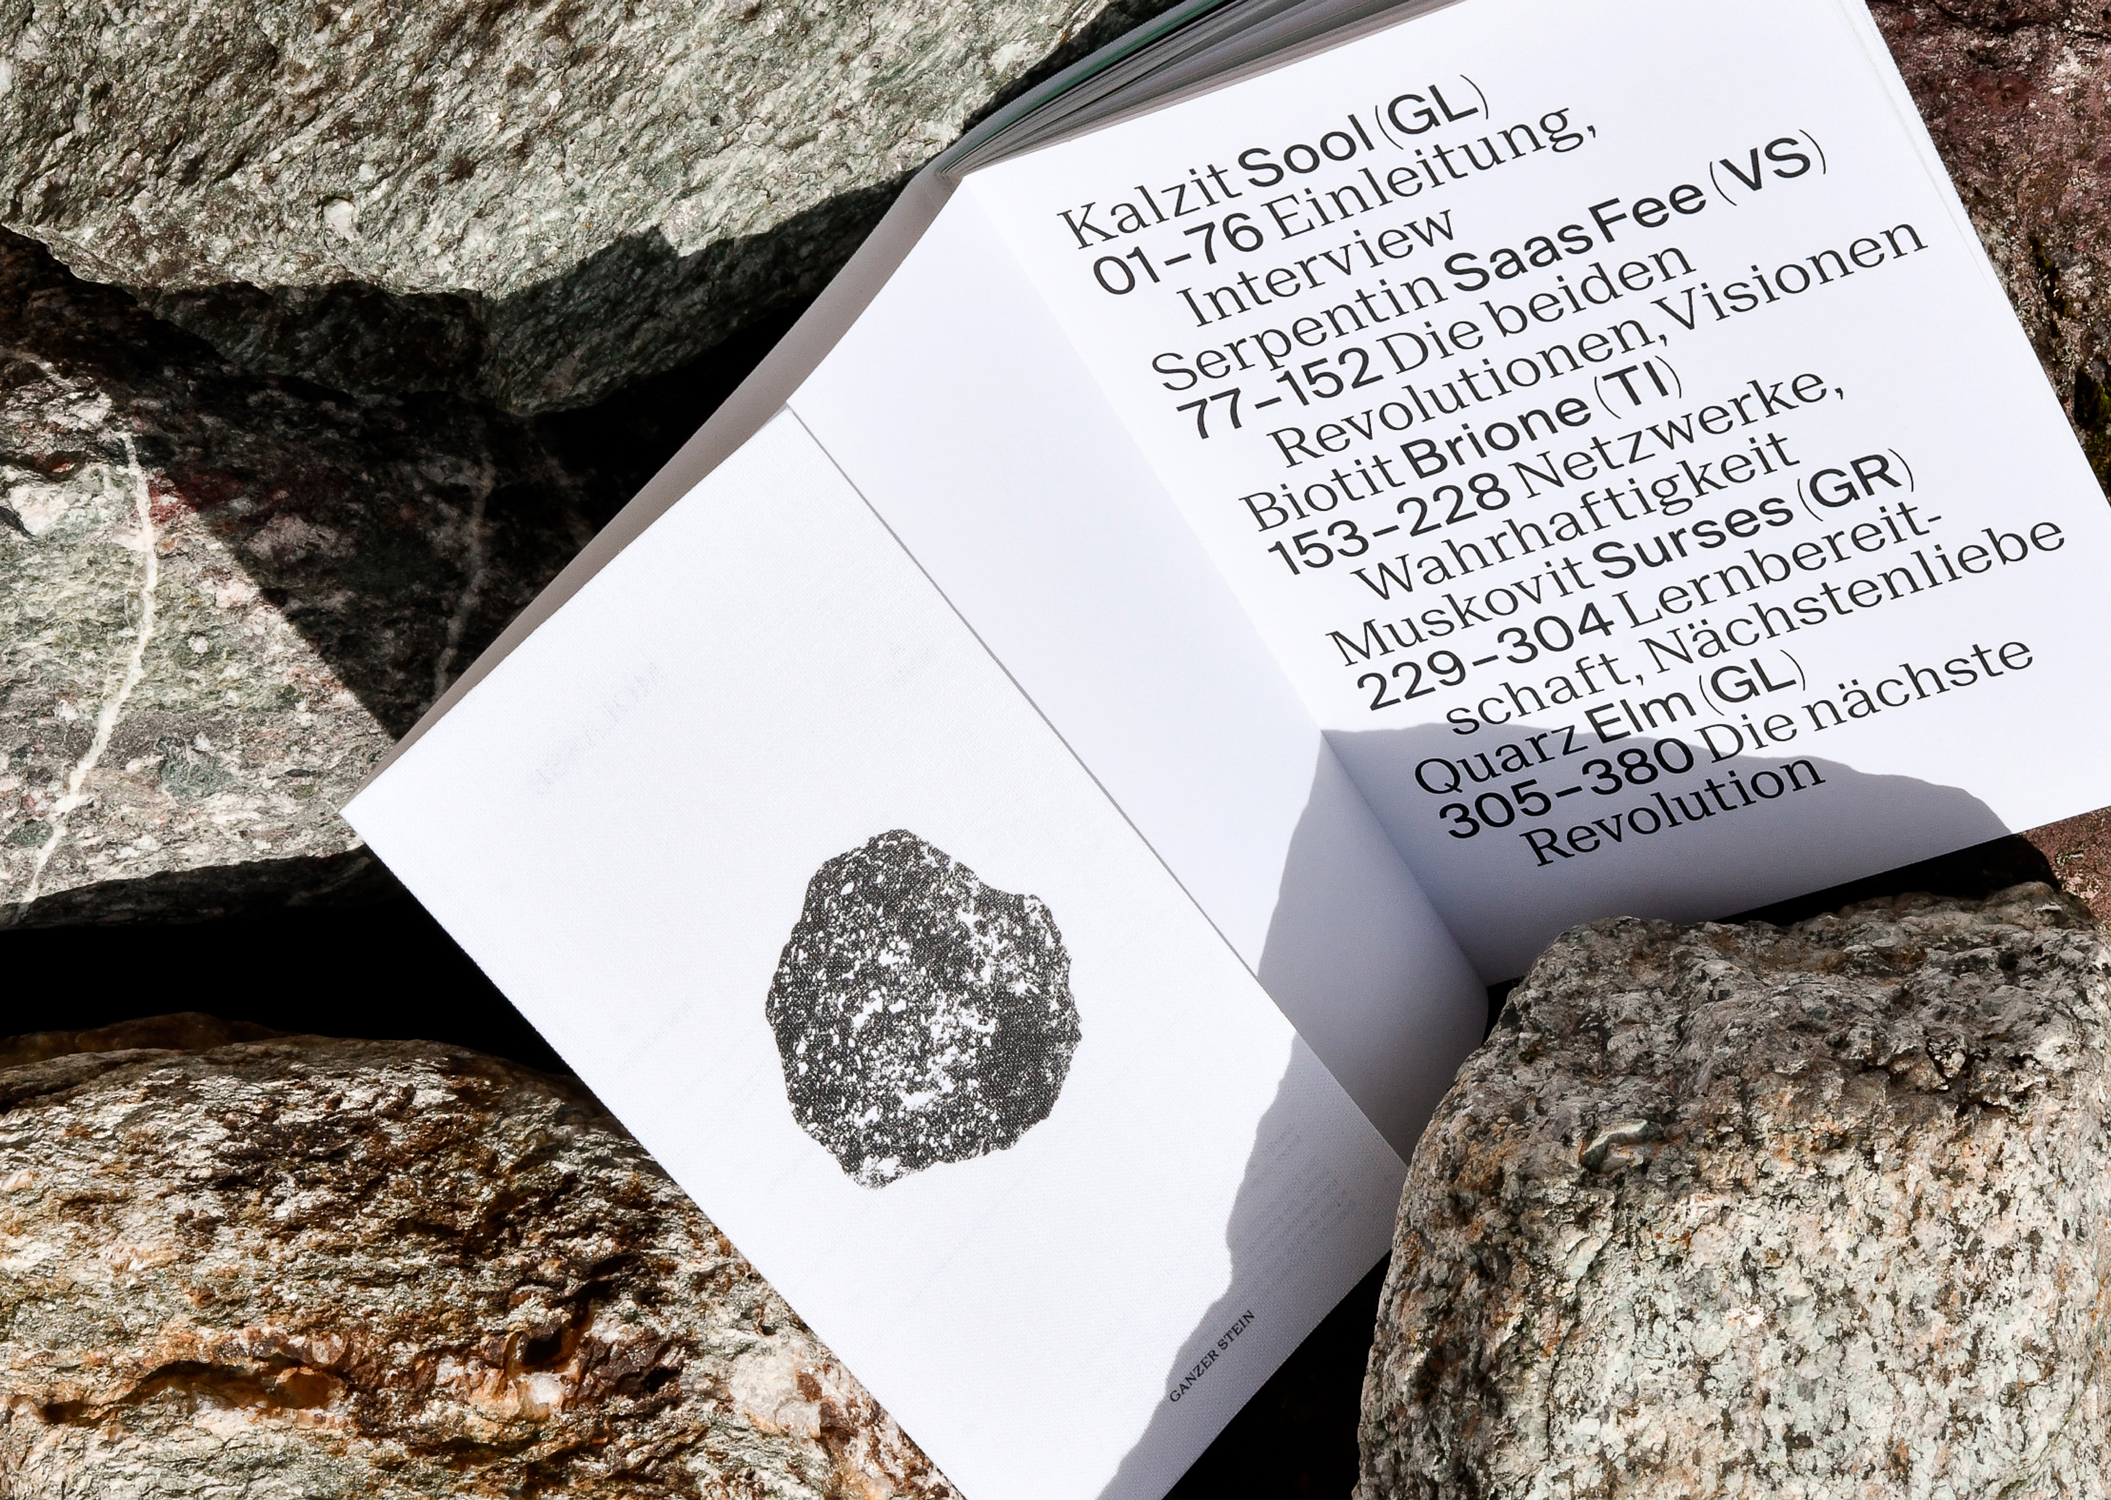 Kalzit Sool (GL)
01–76 Einleitung,
Interview
Serpentin Saas Fee (VS)
77–152 Die beiden
Revolutionen, Visionen
Biotit Brione (TI)
153–228 Netzwerke,
Wahrhaftigkeit
Muskovit Surses (GR)
229–304 Lernbereit-
schaft, Nächstenliebe
Quarz Elm (GL)
305–380 Die nächste
Revolution
GANZER STEIN